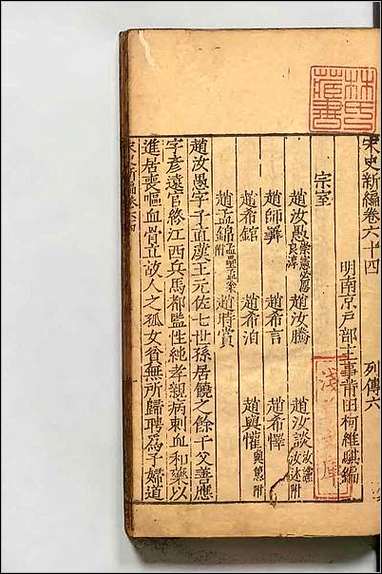 宋史新編卷六十四
列傳六
明南京戶部主事莆田柯維騏編
宗室
趙汝愚 趙汝騰 趙汝談
趙師𢍰 趙希言 趙希懌
趙希館 趙希泊 趙與懽 與𥲅附
趙孟錦 趙時賞
趙汝愚字子直漢王元佐七世孫居饒之餘干父善應
字彥遠官終江西兵馬都監性純孝親病刺血和藥以
進居喪嘔血骨立故人之孤女貧無所歸聘爲子婦道
林氏藏書
淺草文庫